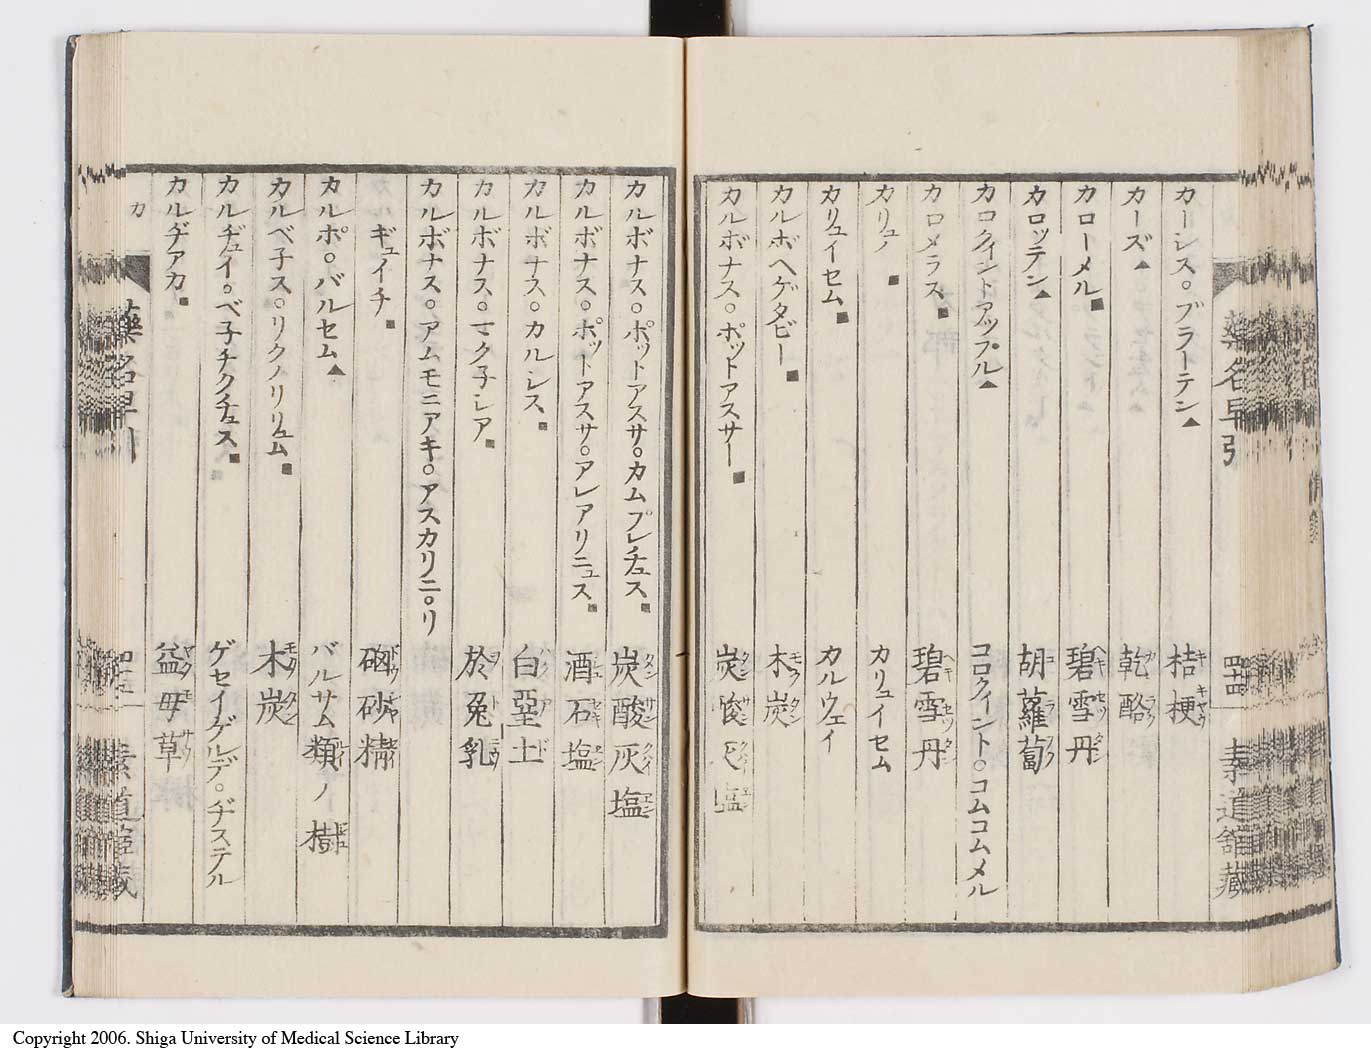 カーンス○ブラーテン▲ 桔梗
カーズ▲ 乾酪
カローメル■ 碧雪丹
カロッテン▲ 胡蘿蔔
カロクィントアップル▲ コロクィント○コムコムメル
カロメラス■ 碧雪丹
カリュノ■ カリュイセム
カリュイセム■ カルウェイ
カルボヘゲタビー■ 木炭
カルボナス○ポットアスサー■ 炭酸灰塩
カルボナス○ポットアスサ○カムプレチュス■ 炭酸灰塩
カルボナス○ポットアスサ○アレアリニュス■ 酒石塩
カルボナス○カルレス■ 白堊土
カルボナス○マク子シア■ 於兔乳
カルボナス○アムモニアキ○アスカリニ○リ
ギュイチ■ 硇砂精
カルポ○バルセム▲ バルサム類ノ樹
カルベ子ス○リクノリリュム■ 木炭
カルヂュイ○ベ子チクチュス■ ゲセイゲルデ○ヂステル
カルヂアカ■ 益母草
カ
藥名早引
Copyright 2006. Shiga University of Medical Science Library